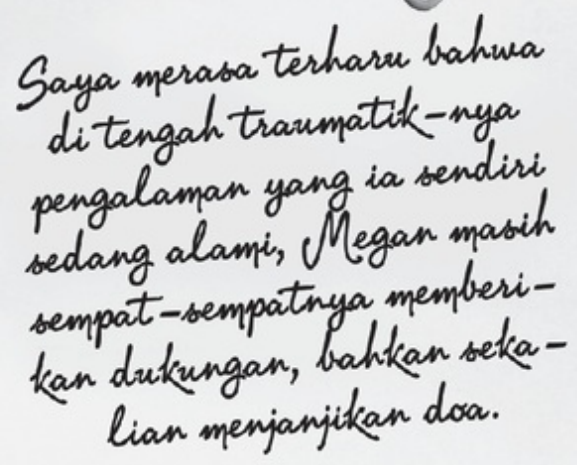 Saya merasa terharu bahwa
di tengah traumatik-nya
pengalaman yang ia sendiri
sedang alami, Megan masih
sempat-sempatnya memberi-
kan dukungan, bahkan seka-
lian menjanjikan doa.